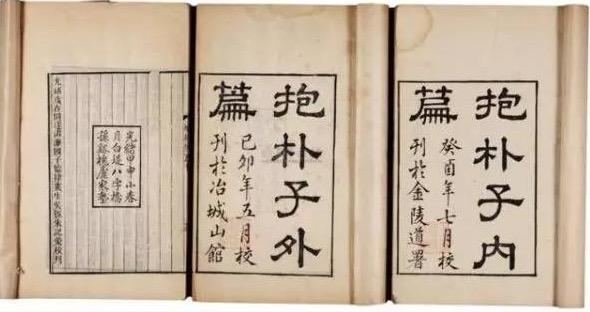 抱朴子内
篇
癸酉年七月校
刊於金陵道署
抱朴子外
篇
己卯年五月校
刊於冶城山館
光緒甲申小春
月白堤八字橋
孫谿槐廬家塾
吳縣朱記榮校刊